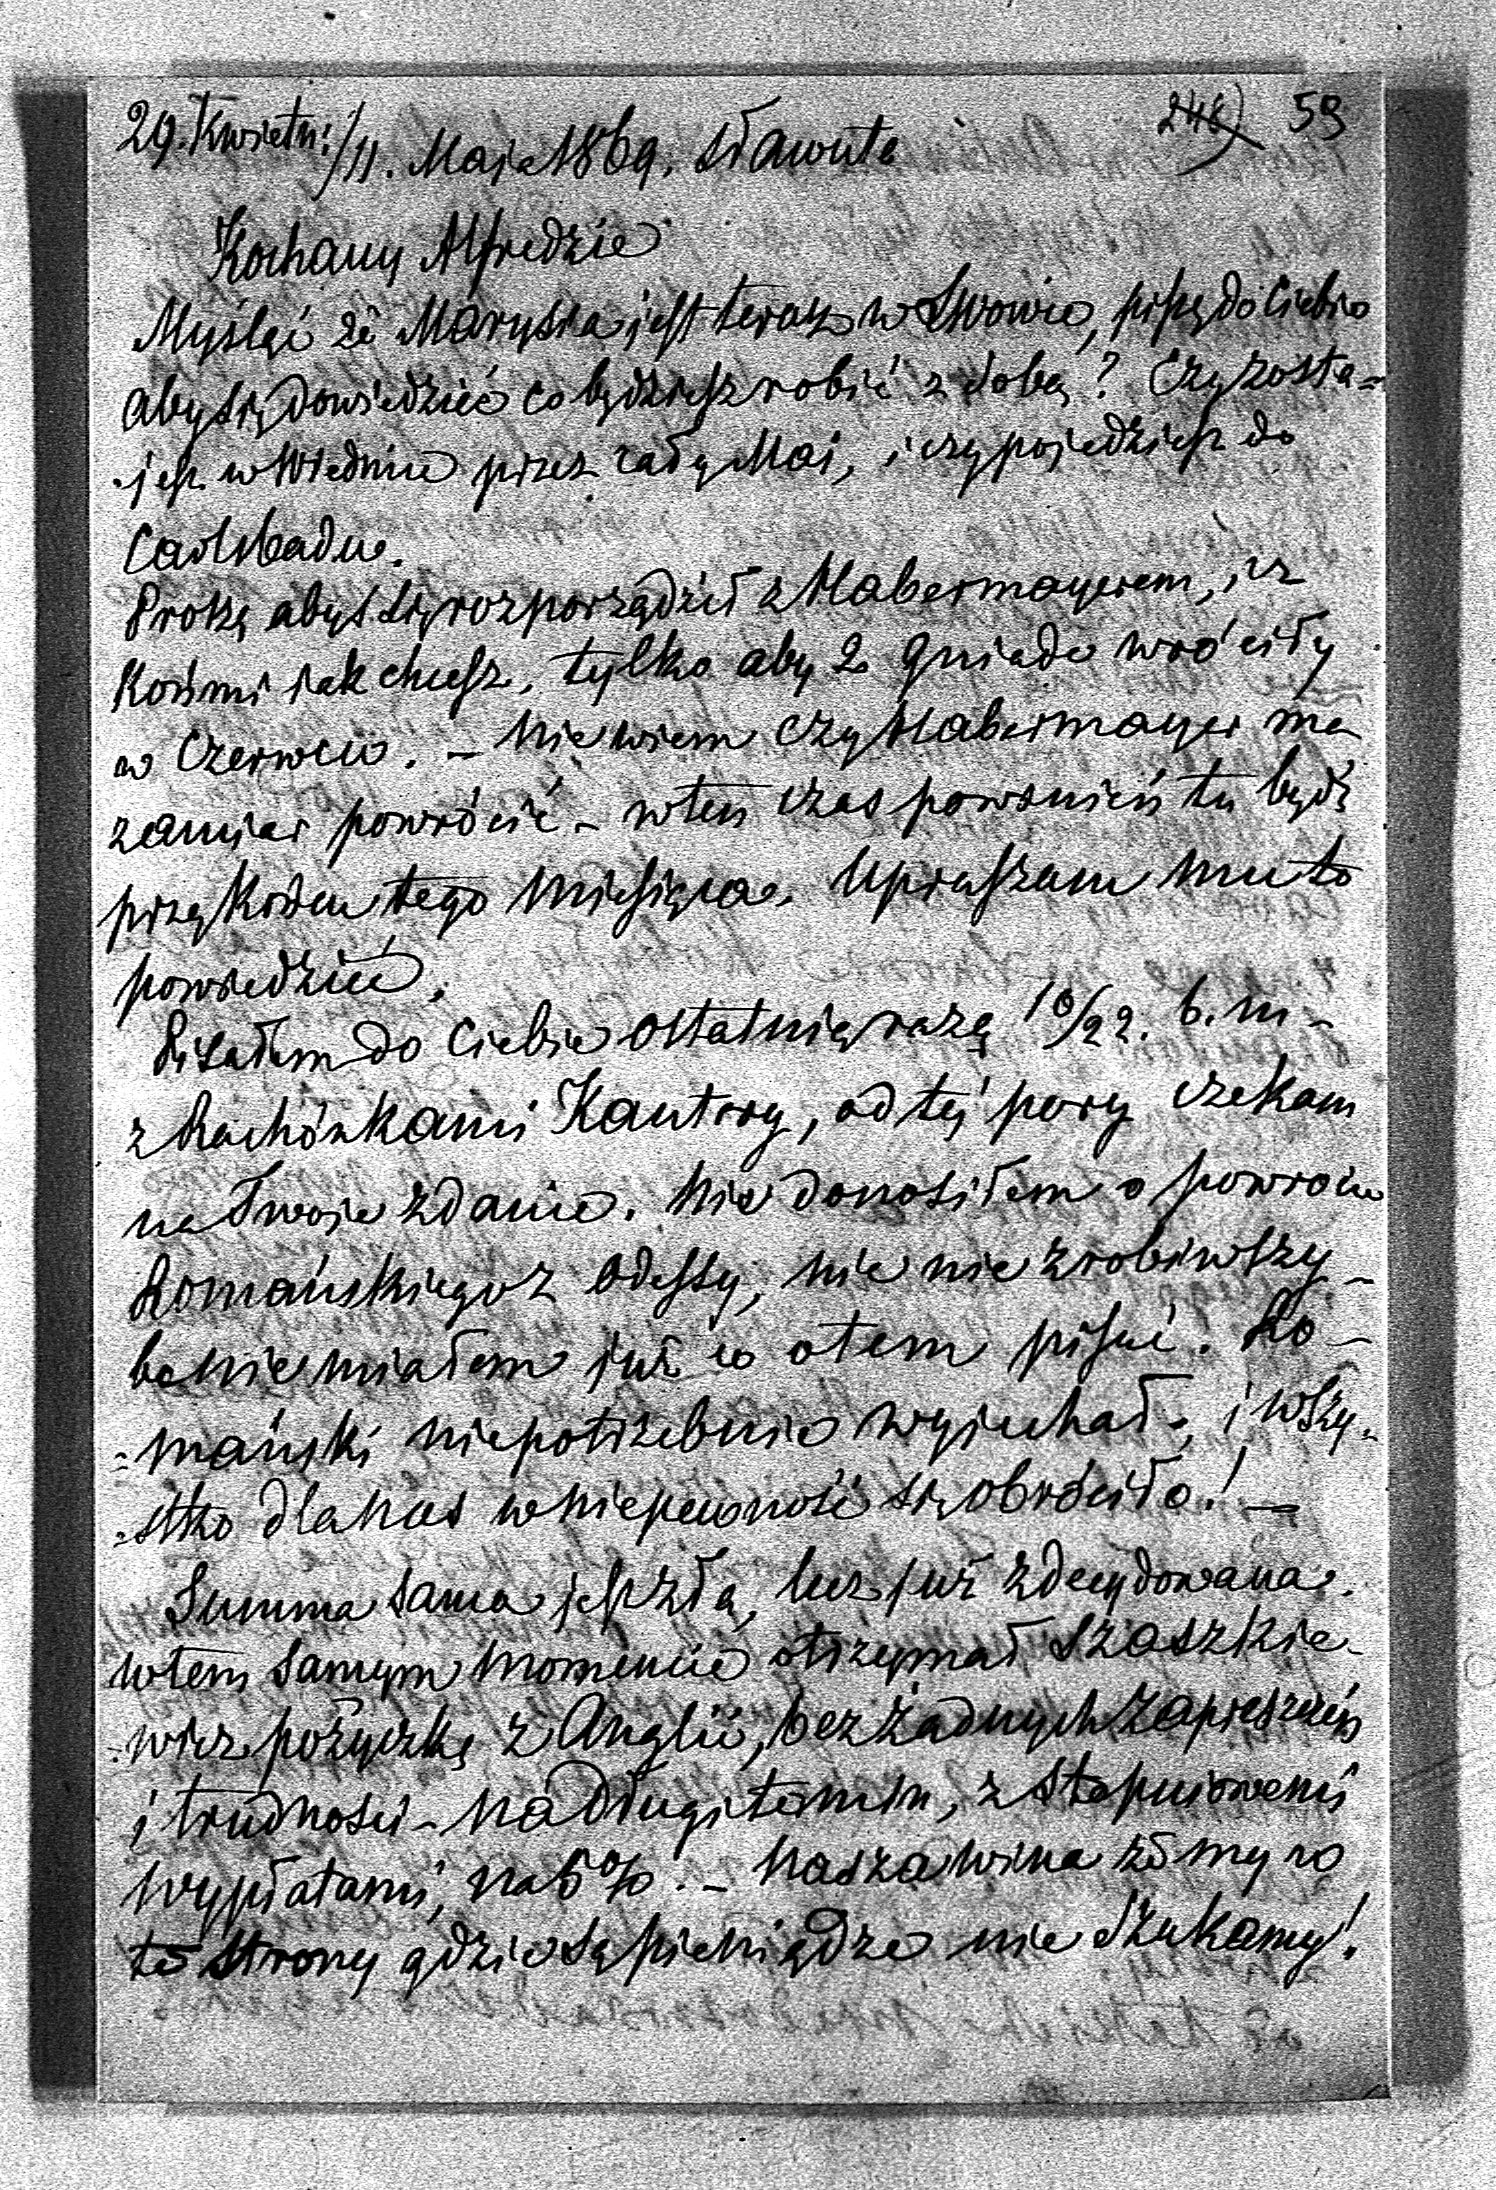 29. Kwietn:/11. Maja 1869. Sławuta
248) 59
Kochany Alfredzie
Myśląc że Marysia jest teraz w Lwowie, piszę do Ciebie
aby się dowiedzieć co będziesz robić z sobą? Czy zosta=
jesz w Wiedniu przez cały Maj, i czy pojedziesz do
Carlsbadu.
Proszę abyś się rozporządził z Habermayerem, i z
Końmi jak chcesz, tylko aby 2 gniade wróciły
w Czerwcu. – Nie wiem czy Habermayer ma
zamiar powrócić – w ten czas powinien tu być
przy Końcu tego Miesiąca. Upraszam mu to
powiedzieć.
Pisałem do Ciebie ostatnią razą 10/22. b. m –
z Rachónkami Kantory, od tej pory czekam
na Twoje zdanie. Nie donosiłem o powrocie
Romańskiego z Odessy, nic nie zrobiwszy –
bo nie miałem już co o tem pisać. Ro –
=mański niepotrzebnie wyjechał, i wszy=
=stko dla nas w niepewność się obróciło! –
Summa sama jest złą, lecz już zdecydowana.
W tem samym momencie otrzymał Szaszkie-
=wicz pożyczkę z Anglii, bez żadnych zapieszczeń
i trudności – na długi termin, z stopniowemi
wypłatami, na 5%. – Nasza wina że my w
te strony gdzie są pieniądze nie szukamy!